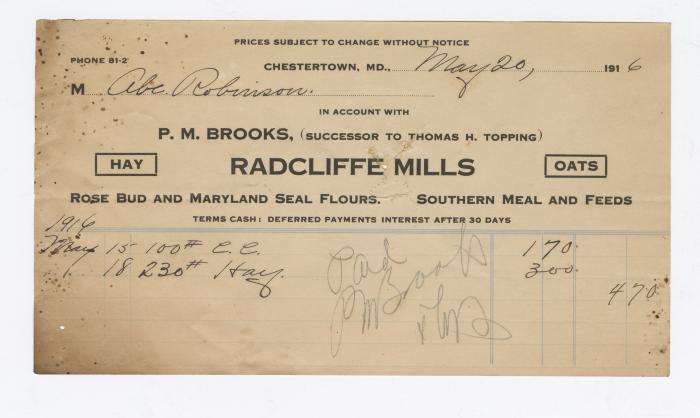 PRICES SUBJECT TO CHANGE WITHOUT NOTICE
PHONE 81-2
CHESTERTOWN, MD., May 20, 1916
M Abe Robinson.
IN ACCOUNT WITH
P. M. BROOKS, (SUCCESSOR TO THOMAS H. TOPPING)
HAY RADCLIFFE MILLS OATS
ROSE BUD AND MARYLAND SEAL FLOURS. SOUTHERN MEAL AND FEEDS
TERMS CASH: DEFERRED PAYMENTS INTEREST AFTER 30 DAYS
1916
May 15 100# C.C. 170
18 230# Hay. 300
470
Paid
PM Brooks